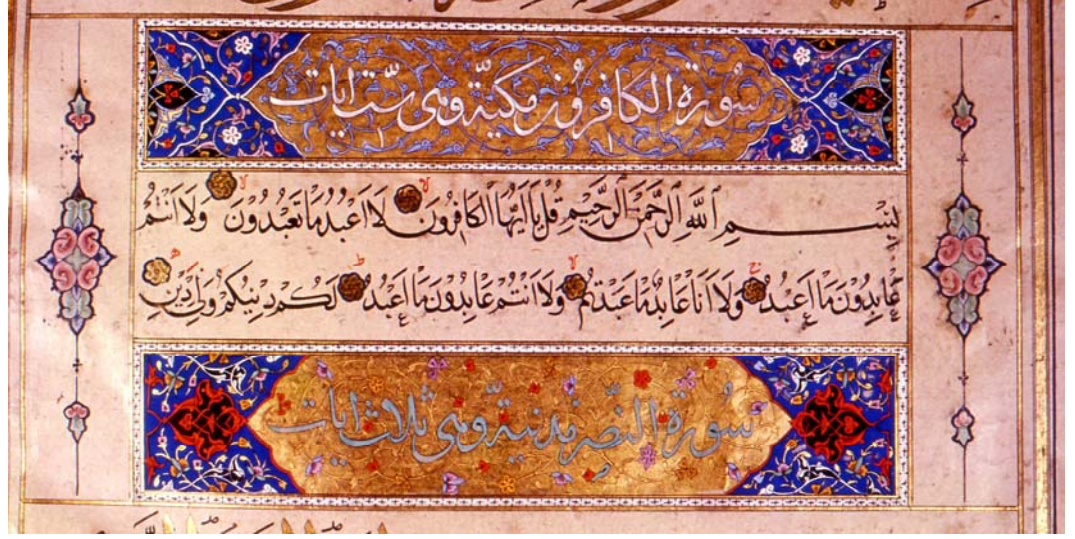 سورة الكافرون مكية وهي ست ايات
بِسْمِ ٱللَّهِ ٱلرَّحْمٰنِ ٱلرَّحِيمِ قُلْ يَا اَيُّهَا الْكَافِرُونَ لَا اَعْبُدُ مَا تَعْبُدُونَ وَلَا اَنْتُمْ
عَابِدُونَ مَا اَعْبُدُ وَلَا اَنَا عَابِدٌ مَا عَبَدْتُمْ وَلَا اَنْتُمْ عَابِدُونَ مَا اَعْبُدُ لَكُمْ دِينُكُمْ وَلِيَ دِينِ
سورة النصر مدنية وهي ثلاث ايات